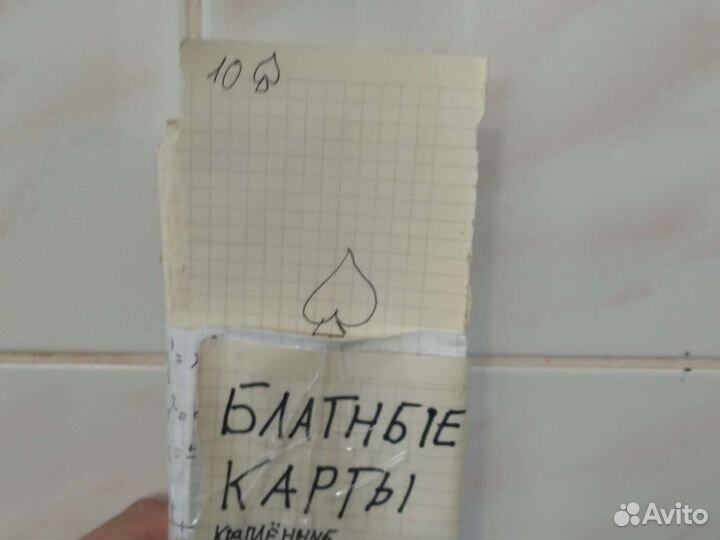 10
БЛАТНЫЕ
КАРТЫ
КРАПЛЁННЫЕ
Avito